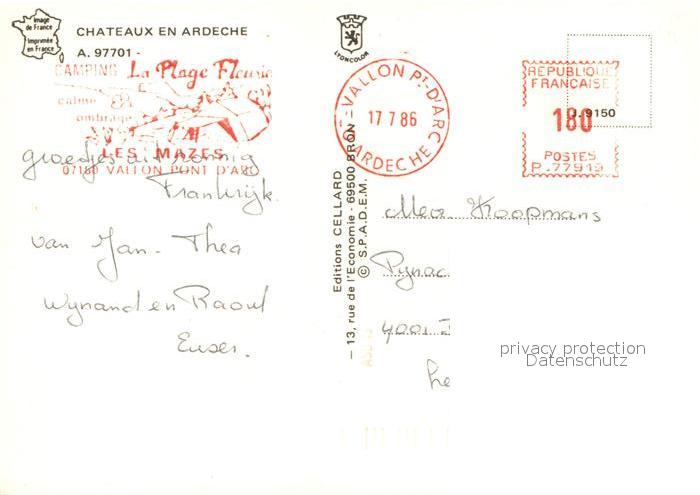 Image
de France
Imprimée
en France
CHATEAUX EN ARDECHE
A. 97701 -
CAMPING La Plage Fleurie
calme
ombrage
LES MAZES
07150 VALLON PONT D'ARC
groetjes uit zonnig
Frankrijk.
van Jan - Thea
Wynand en Raoul
LYONCOLOR
Editions CELLARD
— 13, rue de l'Economie - 69500 BRON —
© S.P.A.D.E.M.
VALLON Pt-D'ARC
17 7 86
ARDECHE
REPUBLIQUE
FRANCAISE
180
9150
POSTES
P.77919
Koopmans
Pynac
4001
privacy protection
Datenschutz